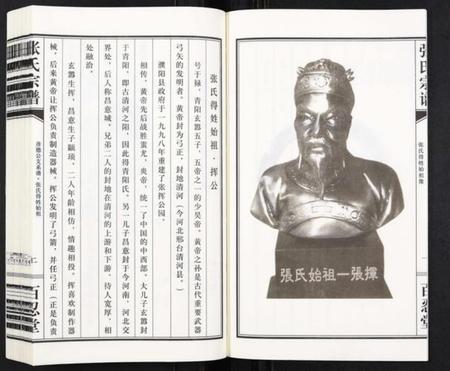 张氏宗谱
张氏得姓始祖像
百忍堂
張氏始祖一張揮
张氏得姓始祖·挥公
号于禄，青阳玄嚣五子，五帝之一的少昊帝。黄帝之孙是古代重要武器
弓矢的发明者，黄帝封为弓正，封地清河（今河北邢台清河县。）
濮阳县政府于一九九八年重建了张挥公园。
相传，黄帝先后战胜蚩尤、炎帝，统一了中国的中西部。大儿子玄嚣封
于青阳，即古清河之阳，因此得青阳氏。另一儿子昌意封于今河南、河北交
界处，后人称昌意城，兄弟二人的封地在清河的上游和下游。待人宽厚，相
处融洽。
玄嚣生挥，昌意生子颛顼，二人年龄相仿，情趣相投。挥喜欢制作器
械，后来黄帝让挥公负责制造器械。挥公发明了弓箭，并任弓正（正是负责
张氏宗谱
彦德公支系谱·张氏得姓始祖
百忍堂